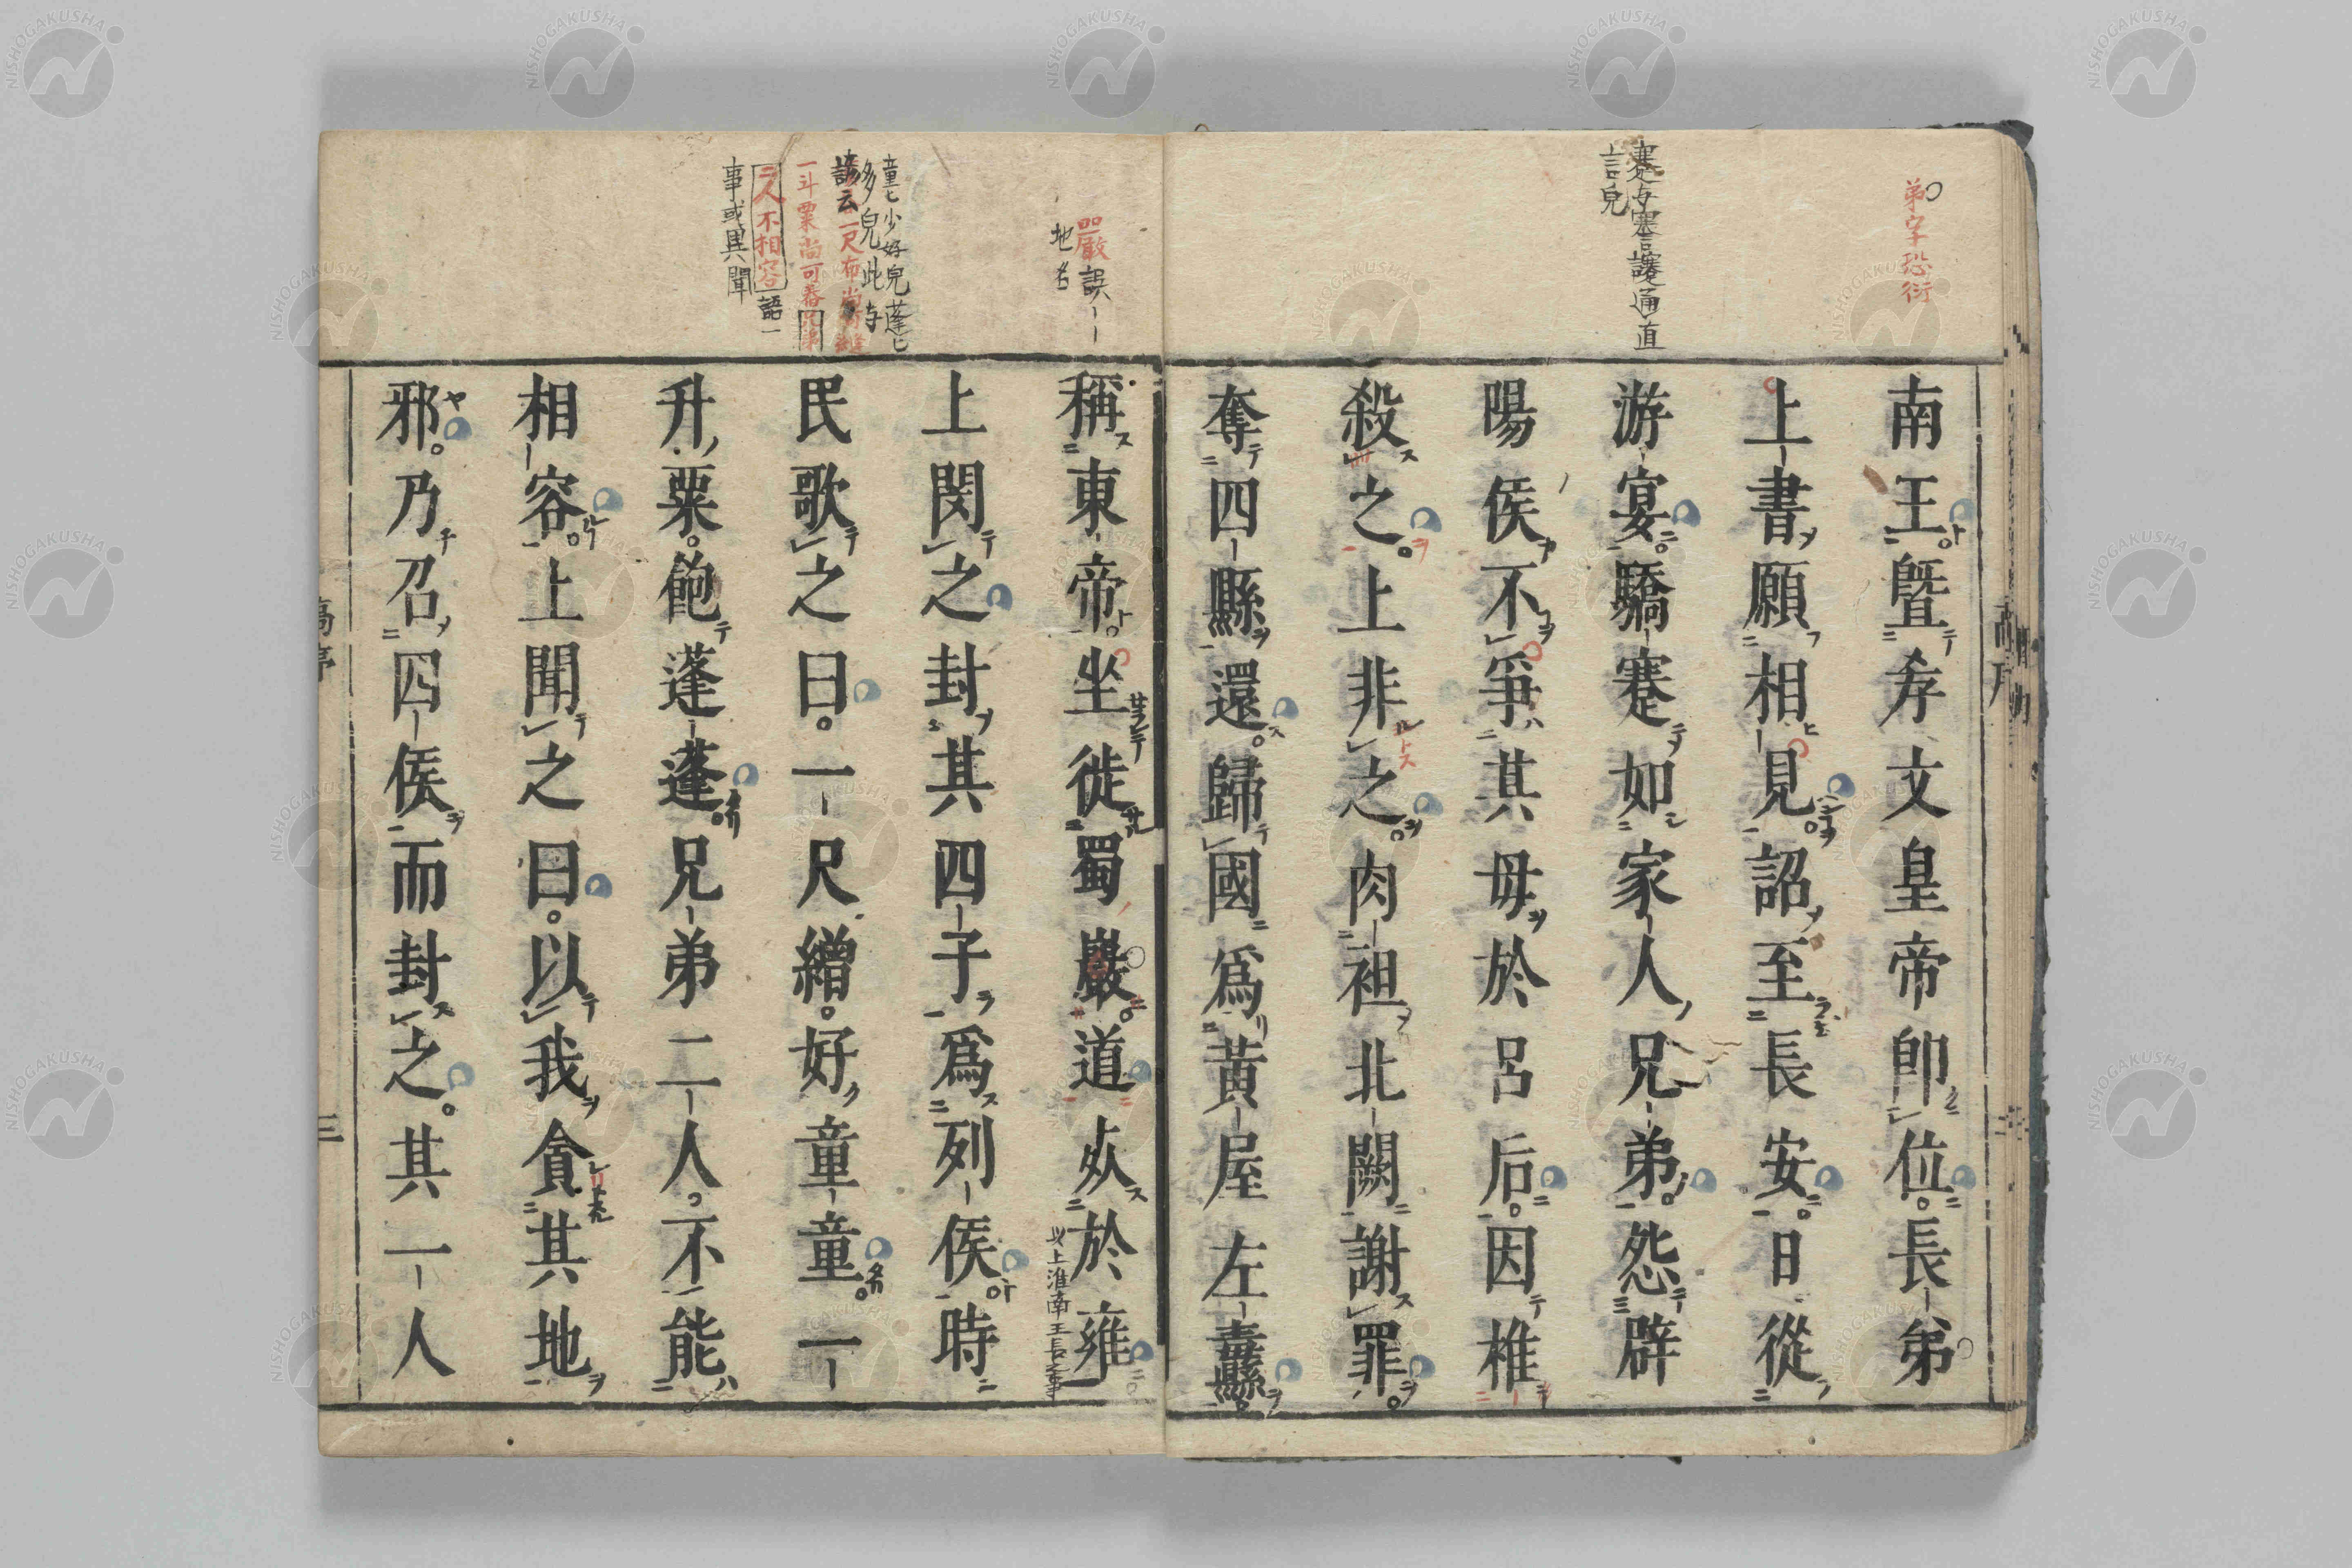 弟字恐衍
蹇与謇讓通直
言皃
南王曁孝文皇帝卽位。長弟
上書願相見。詔至長安。日從
游宴。驕蹇如家人兄弟。怨辟
陽侯不爭其母於呂后。因椎
殺之。上非之。肉袒北闕謝罪。
奪四縣。還歸國。爲黃屋左纛。
嚴誤
地名
童〻少好皃蓬〻
多皃此時
諺云一尺布尚可縫
一斗粟尚可舂兄弟
二人不相容語一
事或異聞
稱東帝。坐徙蜀嚴道。死於雍。
此上淮南王長之事
上閔之。封其四子爲列侯。時
民歌之曰。一尺繒。好童童。一
升粟。飽蓬蓬。兄弟二人。不能
相容。上聞之曰。以我貪其地
邪。乃召四侯而封之。其一人
三
NISHOGAKUSHA